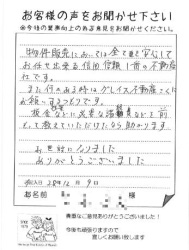 お客様の声をお聞かせ下さい
※今後の業務向上の為ご意見をお聞かせください。
物件販売においては全て安心して
お任せ出来る信用信頼1番の不動産
社です。
また何かある時はグレイス不動産さんに
お願いするつもりです。
えて頂いたりしたら助かります
お世話になりました
ありがとうございました
記入日 28年12月9日
お名前 様
貴重なご意見ありがとうございました！
今後も頑張りますので
宜しくお願い致します